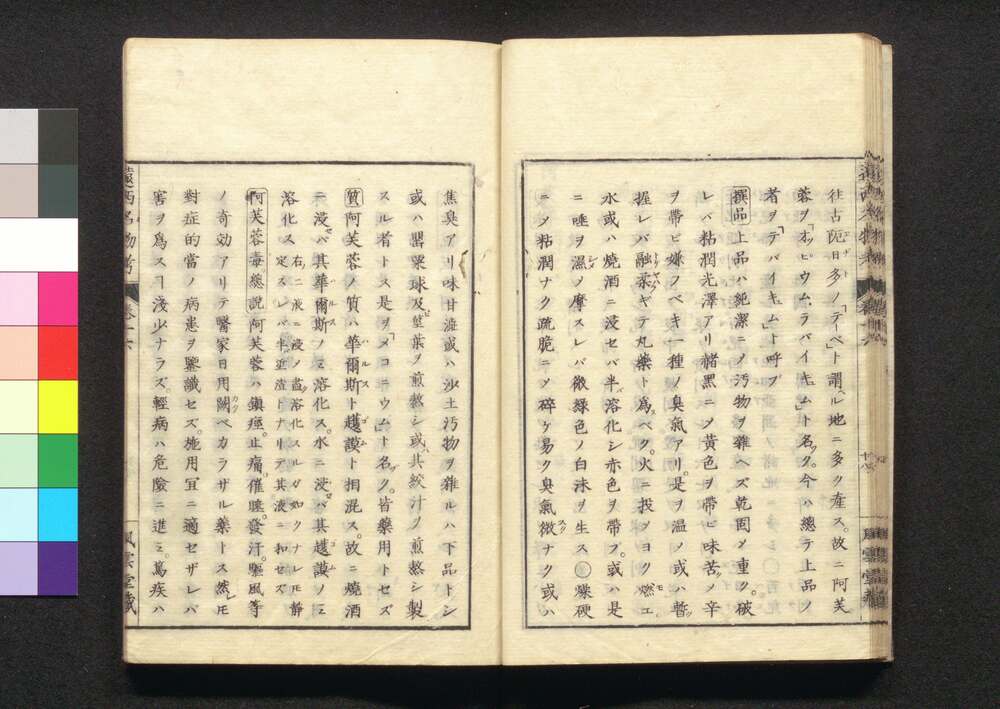 往古阨日多ノ「テーベ」ト謂ヘル地ニ多ク産ス。故ニ阿芙
蓉ヲ「オッピウム、テバイキュム」ト名ク。今ハ總テ上品ノ
者ヲ「テバイキュム」ト呼ブ
撰品 上品ハ純潔ニメ汚物ヲ雜ヘズ乾固メ重ク。破
レバ粘潤光澤アリ赭黒ニメ黄色ヲ帶ビ味苦メ辛
ヲ帶ビ嫌フベキ一種ノ臭氣アリ。是ヲ温メ或ハ暫
握レバ融柔ギテ丸藥ト爲ベク。火ニ投グヨク燃エ
水或ハ燒酒ニ浸セバ半溶化シ赤色ヲ帶ブ。或ハ是
ニ唾ヲ濕メ摩スレバ微緑色ノ白沫ヲ生ス〇燥硬
ニメ粘潤ナク疏脆ニメ碎ケ易ク臭氣微ナク或ハ
焦臭アリ味甘澁或ハ沙土汚物ヲ雜ルハ下品トシ
或ハ罌粟球及ビ莖葉ヲ煎熬シ或ハ其絞汁ヲ煎熬シ製
スル者トス是ヲ「メコニウム」ト名ク。皆藥用トセズ
質 阿芙蓉ノ質ハ華爾斯ト謨ト相混ス。故ニ燒酒
ニ浸バ其華爾斯ノミ溶化ス。水ニ浸バ其謨ノミ
溶化ス 右二液ニ浸メ盡溶化スルガ如クナレモ靜定スレバ半近渣トナリテ其液ニ和セズ
阿芙蓉毒總說 阿芙蓉ハ鎮痙。止痛。催睡。發汗。驅風等
ノ奇効アリテ醫家日用闕ベカラザル藥トス然レモ
對症的當ノ病患ヲ鑒識セズ。施用宜ニ適セザレバ
害ヲ爲スヿ淺少ナラズ。輕病ハ危險ニ進ミ。篤疾ハ
遠西名物考
卷十六
風雲堂藏